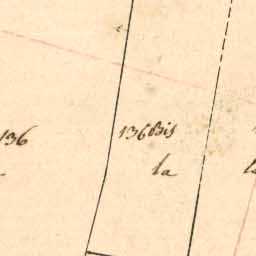 136
136 Bis
la